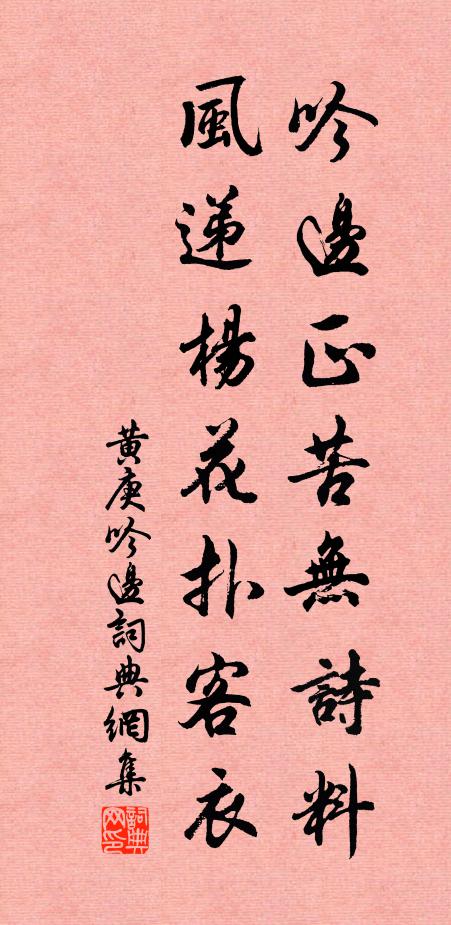 吟邊正苦無詩料
風递楊花扑客衣
黄庚吟邊詞典網集
詞典网印